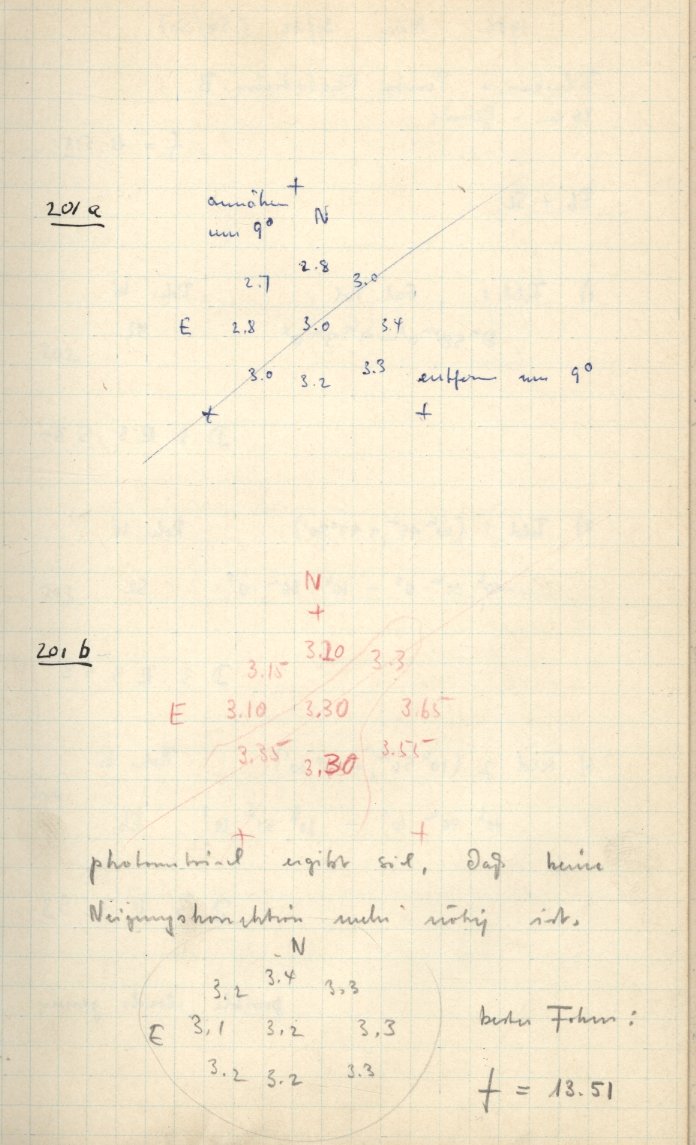 201 a
annähern +
um 9° N
2.7 2.8 3.0
E 2.8 3.0 3.4
3.0 3.2 3.3 entfern um 9°
+ +
N
+
201 b
3.15 3.20 3.3
E 3.10 3.30 3.65
3.35 3.30 3.55
+ +
photometrisch ergibt sich, daß keine
Neigungskorrektion mehr nötig ist.
N
3.2 3.4 3.3
E 3,1 3,2 3,3
3.2 3.2 3.3
bester Fokus:
f = 13.51